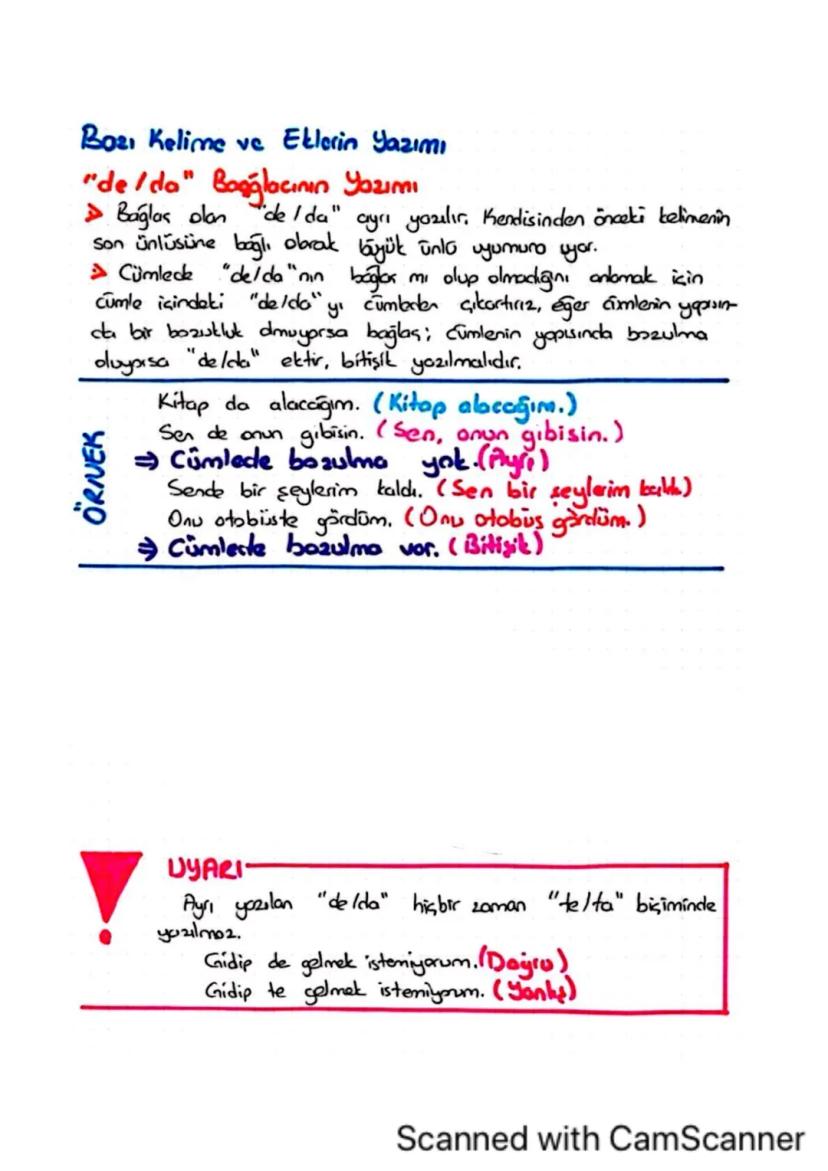 Bazı Kelime ve Eklerin Yazımı
"de/da" Bağğlacının Yazımı
➢ Bağlaç olan "de/da" ayrı yazılır. Kendisinden önceki kelimenin
son ünlüsüne bağlı olarak büyük ünlü uyumuna uyar.
➢ Cümlede "de/da"nın bağlaç mı olup olmadığını anlamak için
cümle içindeki "de/da"yı cümleden çıkartırız, eğer cümlenin yapısın-
da bir bozukluk olmuyorsa bağlaç; cümlenin yapısında bozulma
oluyorsa "de/da" ektir, bitişik yazılmalıdır.
ÖRNEK
Kitap da alacağım. (Kitap alacağım.)
Sen de onun gibisin. (Sen, onun gibisin.)
⇒ Cümlede bozulma yok. (Ayrı)
Sende bir şeylerim kaldı. (Sen bir şeylerim kaldı.)
Onu otobüste gördüm. (Onu otobüs gördüm.)
⇒ Cümlede bozulma var. (Bitişik)
! UYARI
Ayrı yazılan "de/da" hiçbir zaman "te/ta" biçiminde
yazılmaz.
Gidip de gelmek istemiyorum. (Doğru)
Gidip te gelmek istemiyorum. (Yanlış)
Scanned with CamScanner